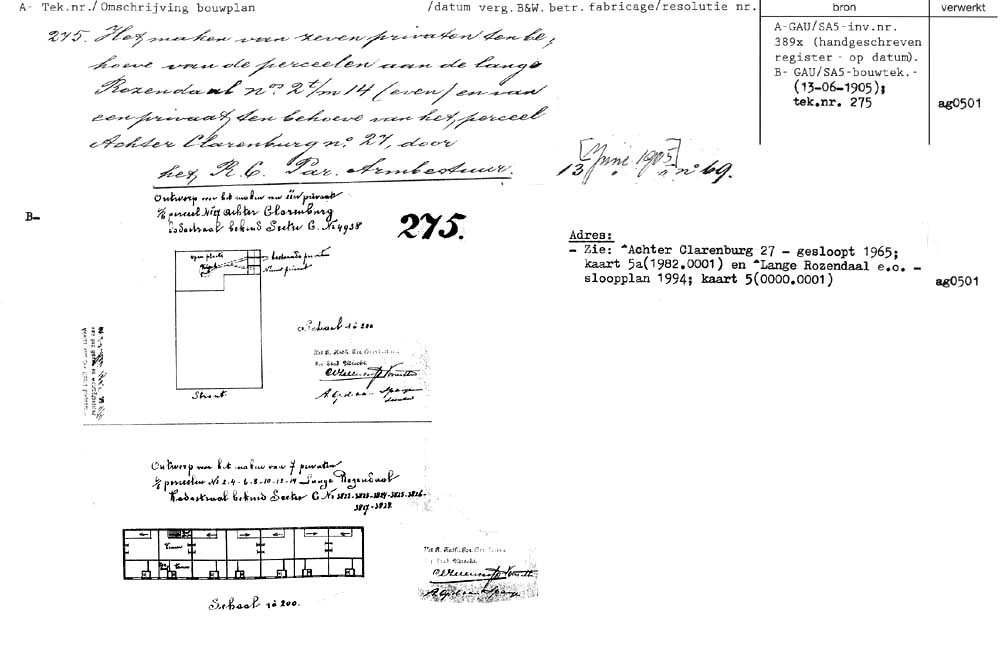 A- Tek.nr./Omschrijving bouwplan /datum verg.B&W. betr. fabricage/resolutie nr. bron verwerkt
275. Het maken van zeven privaten ten be=
hoeve van de perceelen aan de lange
Rozendaal nos. 2 t/m 14 (even) en van
een privaat ten behoeve van het perceel
Achter Clarenburg no. 27, door
het R.C. Par. Armbestuur.
13 [Juni 1905] " no 69.
A-GAU/SA5-inv.nr.
389x (handgeschreven
register - op datum).
B- GAU/SA5-bouwtek.-
(13-06-1905);
tek.nr. 275
ag0501
B-
Ontwerp voor het maken van één privaat
a/h perceel No 27 Achter Clarenburg
Kadastraal bekend Sectie C. No 4938
275.
open plaats
bestaande privaten
Nieuw privaat
Schaal 1 à 200
Straat
Adres:
- Zie: ^Achter Clarenburg 27 - gesloopt 1965;
kaart 5a(1982.0001) en ^Lange Rozendaal e.o. -
sloopplan 1994; kaart 5(0000.0001)
ag0501
Ontwerp voor het maken van 7 privaten
a/d perceelen No 2-4-6-8-10-12-14 Lange Rozendaal
Kadastraal bekend Sectie C No 3822-3823-3824-3825-3826-
3827-3828
Schaal 1 à 200.